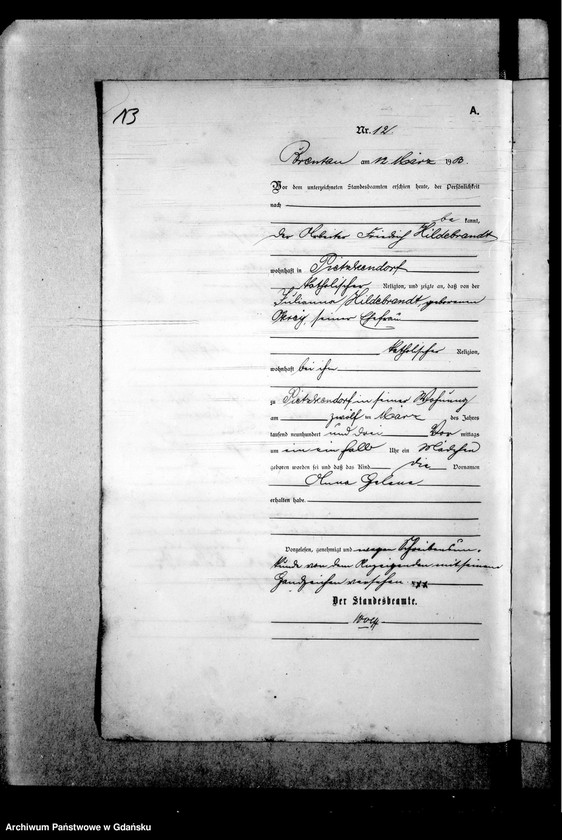 NB
A.
Nr. 12
Brentau am 12 März 1903.
Vor dem unterzeichneten Standesbeamten erschien heute, der Persönlichkeit
nach
be kannt,
der Arbeiter Friedrich Hildebrandt
wohnhaft in Pietzkendorf
katholischer Religion, und zeigte an, daß von der
Julianna Hildebrandt geborenen
seiner Ehefrau
katholischer Religion,
wohnhaft bei ihm
zu Pietzkendorf in seiner Wohnung
am zwölf ten März des Jahres
tausend neunhundert und drei Vor mittags
um ein ein halb Uhr ein Mädchen
geboren worden sei und daß das Kind die Vornamen
Anna Helene
erhalten habe
Vorgelesen, genehmigt und wegen Schreibensun-
kunde von dem Anzeigenden mit seinem
Handzeichen versehen xxx
Der Standesbeamte.
Archiwum Państwowe w Gdańsku